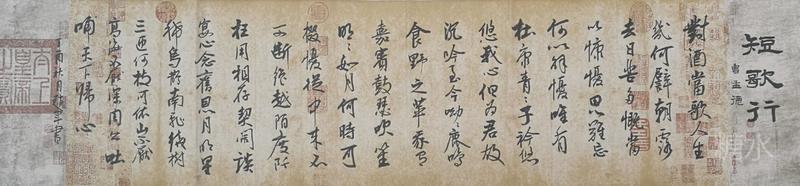 短歌行
曹孟德
對酒當歌人生
幾何譬朝露
去日苦多慨當
以慷憂思難忘
何以解憂唯有
杜康青々子衿悠
悠我心但為君故
沉吟至今呦々鹿鳴
食野之苹我有
嘉賓鼓瑟吹笙
明々如月何時可
掇憂從中來不
可斷絕越陌度阡
枉用相存契闊談
宴心念舊恩月明星
稀烏鵲南飛繞樹
三匝何枝可依山不厭
高海不厭深周公吐
哺天下歸心
丁酉秋月書